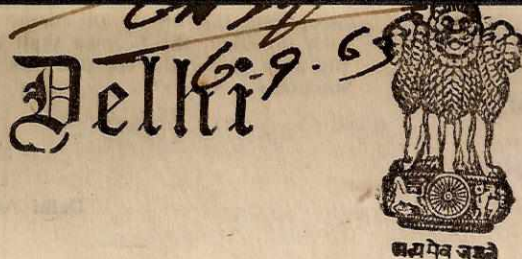 6-9.69
Delhi
सत्यमेव जयते